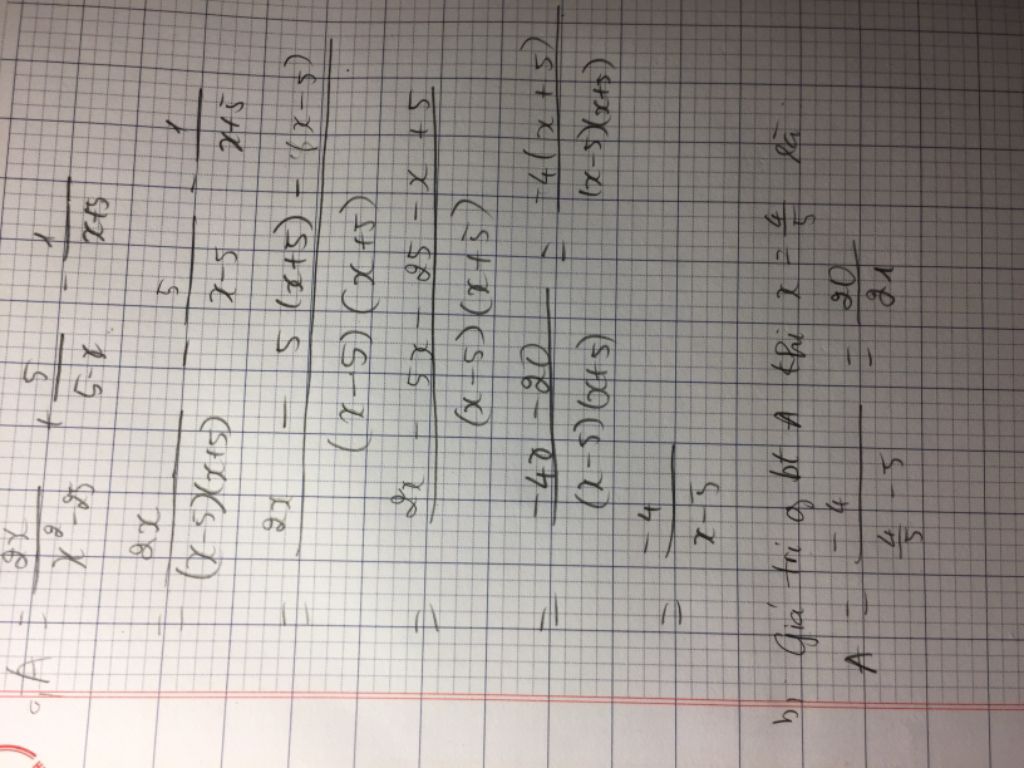 a, A = 2x / x² - 25 + 5 / 5 - x - 1 / x+5
= 2x / (x-5)(x+5) - 5 / x-5 - 1 / x+5
= 2x - 5 (x+5) - (x-5) / (x-5)(x+5)
= 2x - 5x - 25 - x + 5 / (x-5)(x+5)
= -4x - 20 / (x-5)(x+5) = -4(x+5) / (x-5)(x+5)
= -4 / x-5
b, Giá trị of bt A khi x = 4/5 là
A = -4 / 4/5 - 5 = 20 / 21